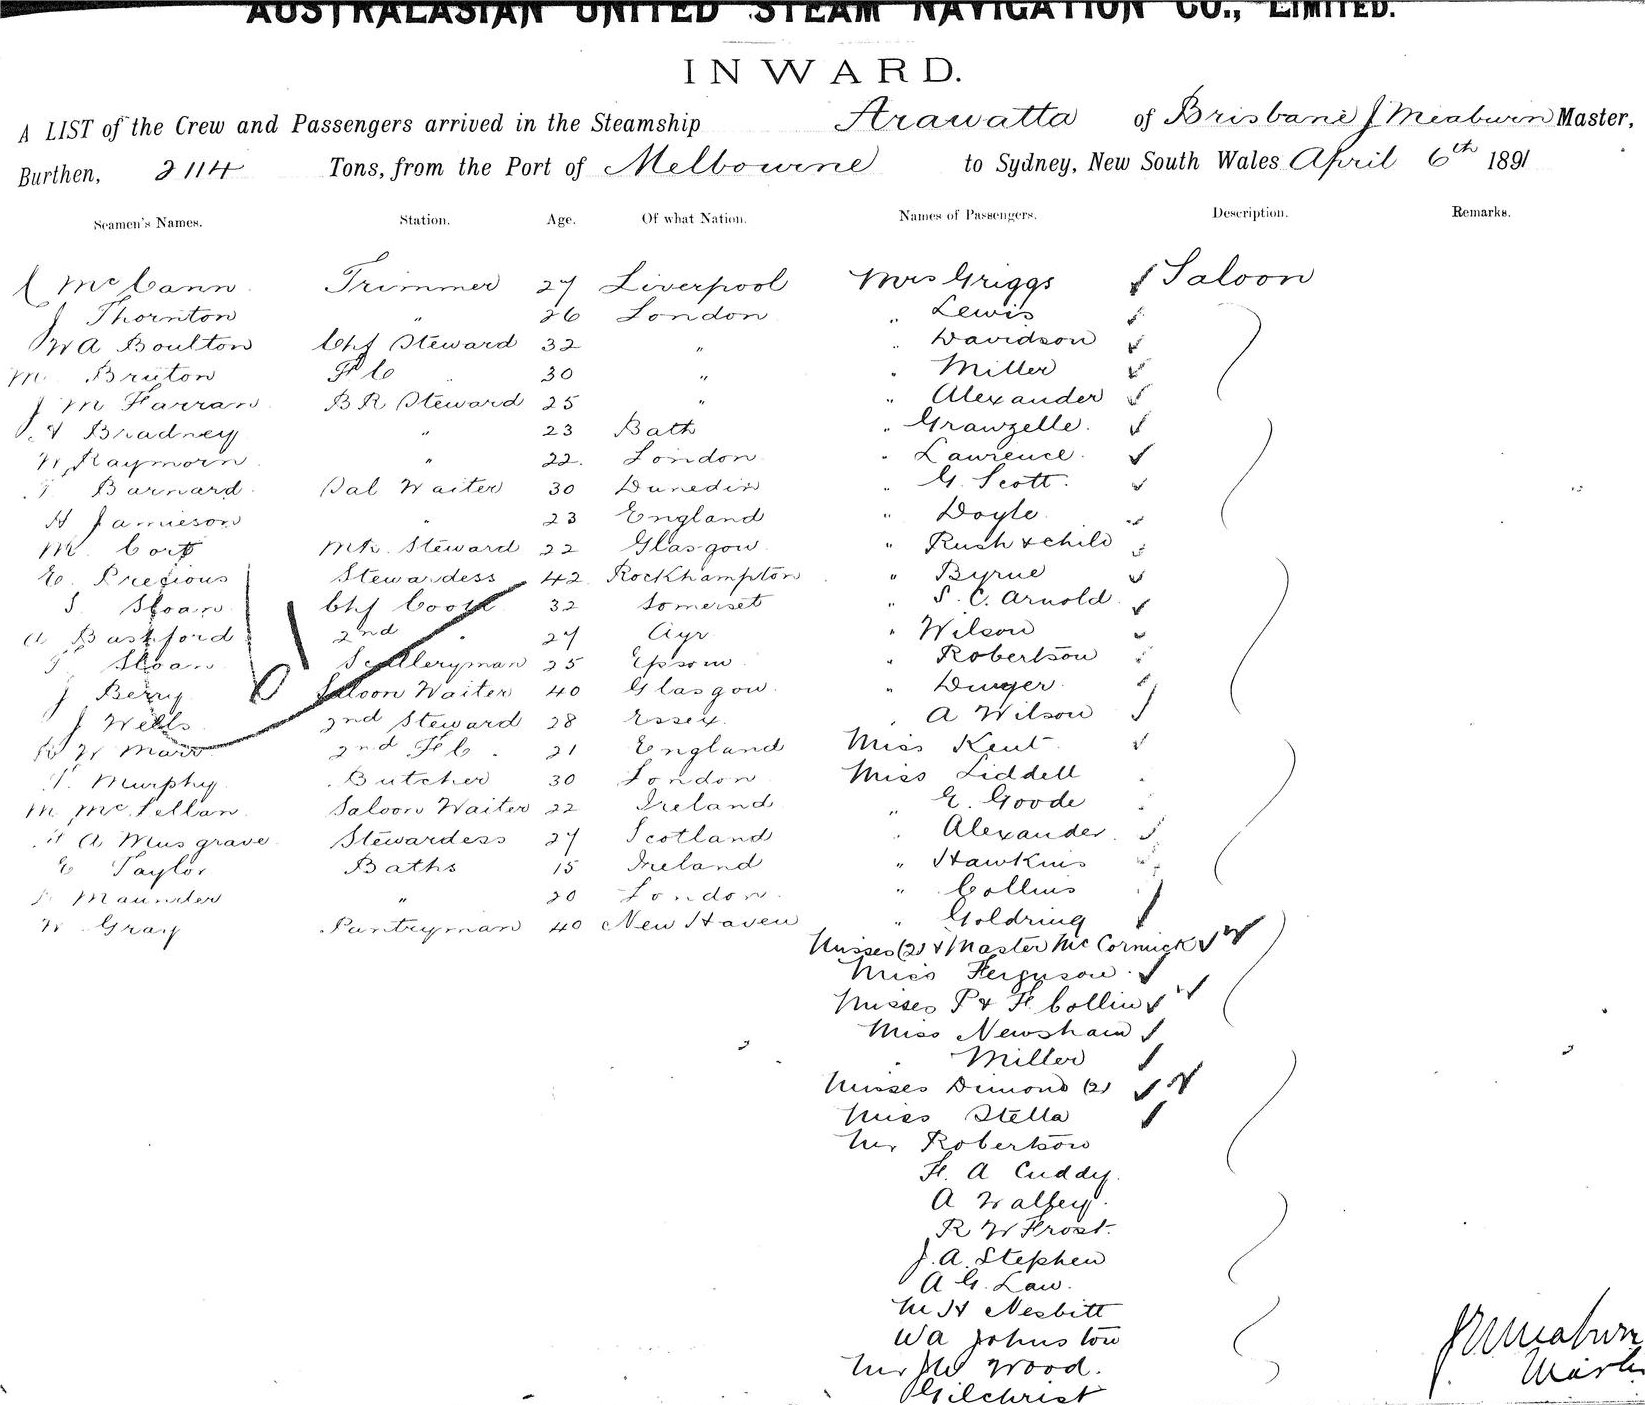 AUSTRALASIAN UNITED STEAM NAVIGATION CO., LIMITED.
INWARD.
A LIST of the Crew and Passengers arrived in the Steamship Arawatta of Brisbane J Meaburn Master,
Burthen, 2114 Tons, from the Port of Melbourne to Sydney, New South Wales April 6th 1891
Seamen's Names. Station. Age. Of what Nation. Names of Passengers. Description. Remarks.
McCann Trimmer 27 Liverpool Mrs Griggs Saloon
J Thornton " 26 London " Lewis
W A Boulton Chf Steward 32 " " Davidson
M Bruton F C " 30 " " Miller
J M Farran B R Steward 25 " " Alexander
Bradney " 23 Bath " Grawzelle.
W Raymorn " 22. London " Lawrence.
Barnard Sal Waiter 30 Dunedin " G. Scott.
H Jamieson " 23 England " Doyle
M. Cort Mk. Steward 22 Glasgow " Rush & child
E. Precious Stewardess 42 Rockhampton " Byrne
S. Sloan Chf Cook 32 Somerset " S. C. Arnold
A Bashford 2nd " 27 Ayr " Wilson
Sloan Sculleryman 25 Epsom " Robertson
J Berry Saloon Waiter 40 Glasgow " Dwyer
J Wells 2nd Steward 28 Essex. " A Wilson
W Marr 2nd F C. 21 England Miss Kent
T Murphy Butcher 30 London Miss Liddell
M McLellan Saloon Waiter 22 Ireland " E. Goode
A Musgrave Stewardess 27 Scotland " Alexander.
E Taylor Baths 15 Ireland " Hawkins
Maunder " 20 London " Collins
W Gray Pantryman 40 New Haven " Goldring
Misses (2) & Master McCormick
Miss Ferguson
Misses P & F. Collin
Miss Newsham
" Miller
Misses Dimond (2)
Miss Stella
Mr Robertson
F. A Cuddy.
A Walfey.
R W Frost.
J. A. Stephen
A G. Law.
M H Nesbitt
W A Johnston
Mr J W Wood.
Gilchrist
J Meaburn
Master